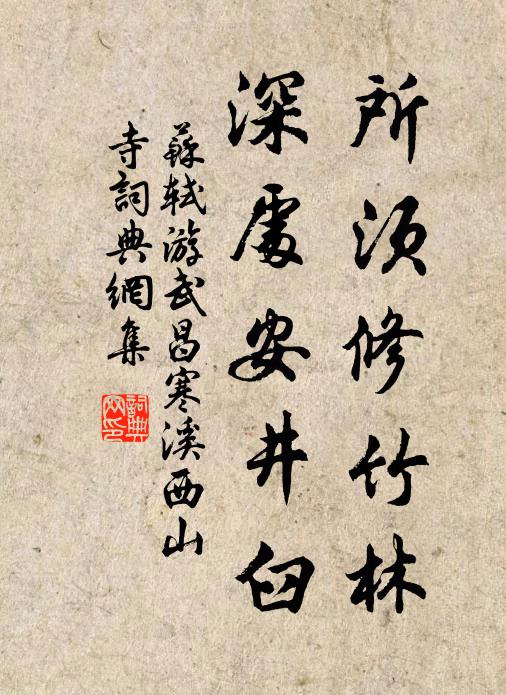 所须修竹林
深處安井臼
蘇軾游武昌寒溪西山
寺詞典網集
詞典網印